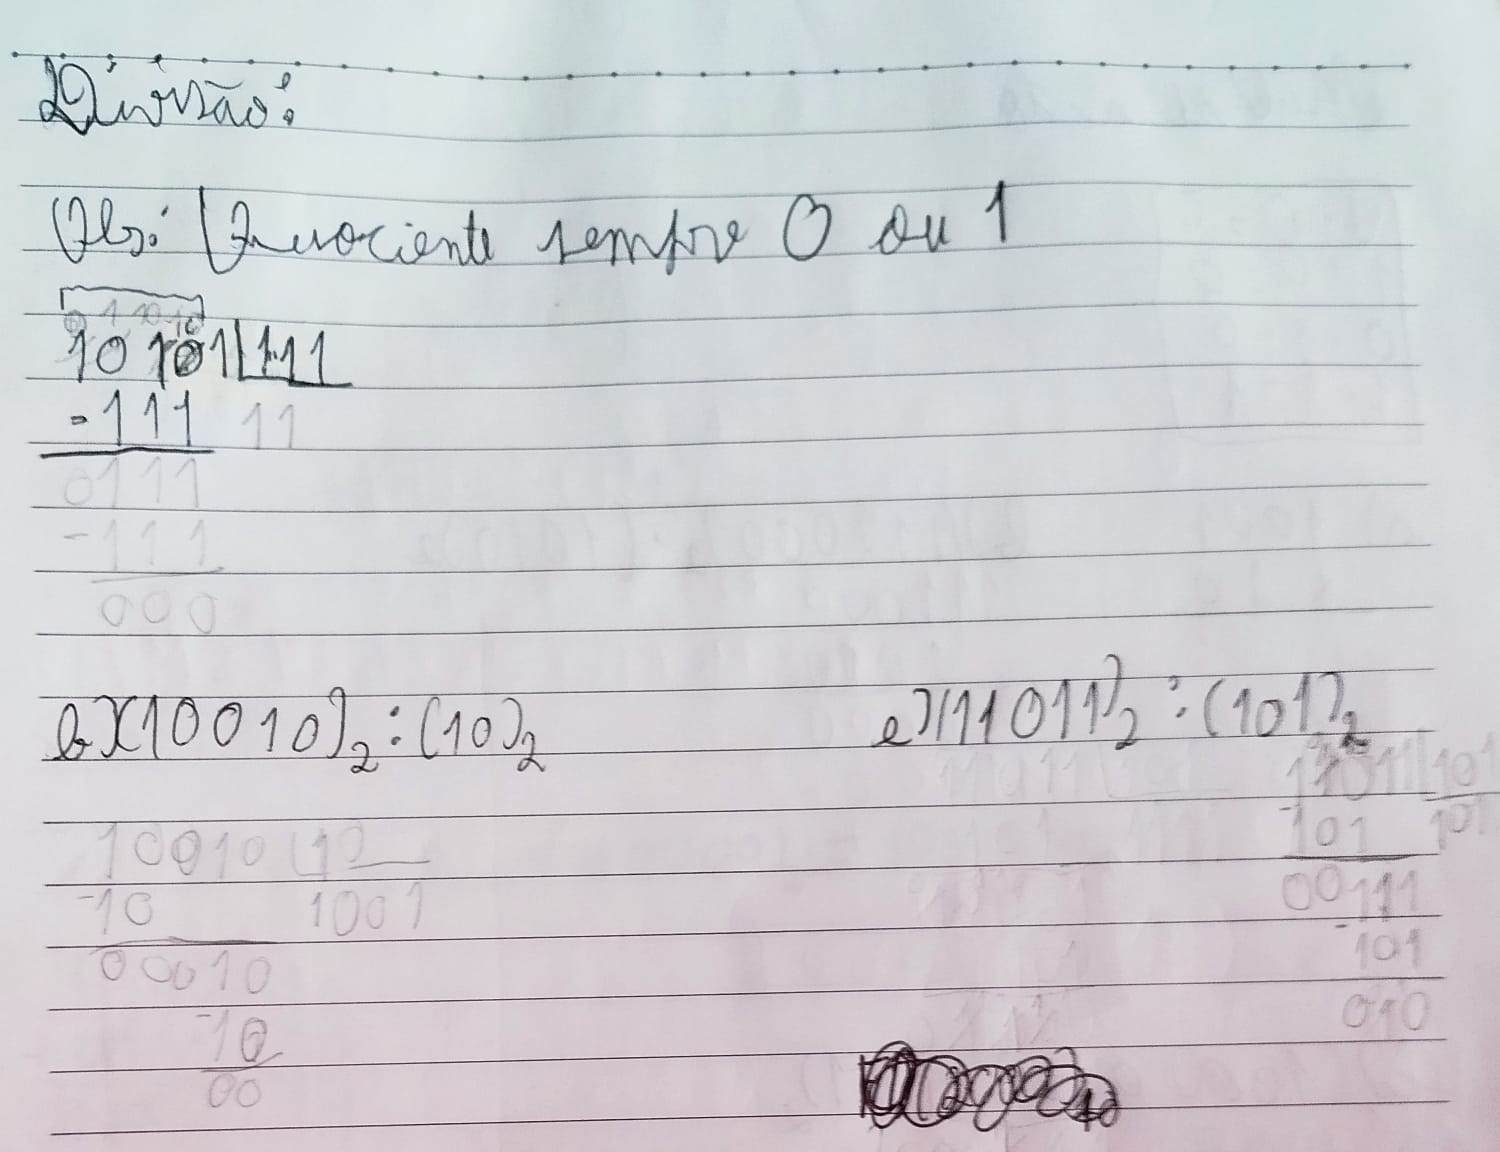 Divisão:
Obs: Quociente sempre 0 ou 1
1 10 10
10101 111
-111 11
0111
-111
000
b) (10010)2 : (10)2
e) (11011)2 : (101)2
10010 10
-10 1001
00010
-10
00
11011 101
-101 101
00111
-101
010